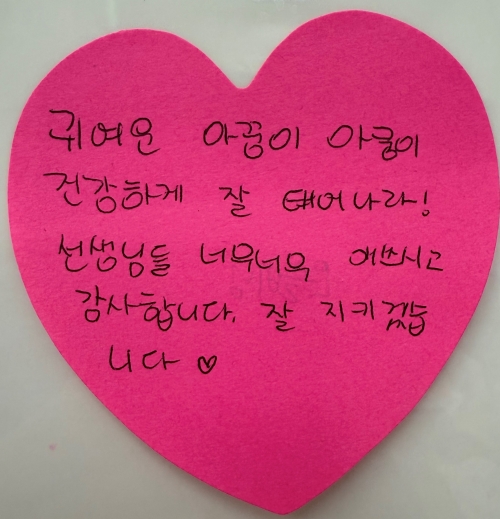 귀여운 아꿍이 아꿍이
건강하게 잘 태어나라!
선생님들 너무너무 애쓰시고
감사합니다. 잘 지키겠습
니다 ♡